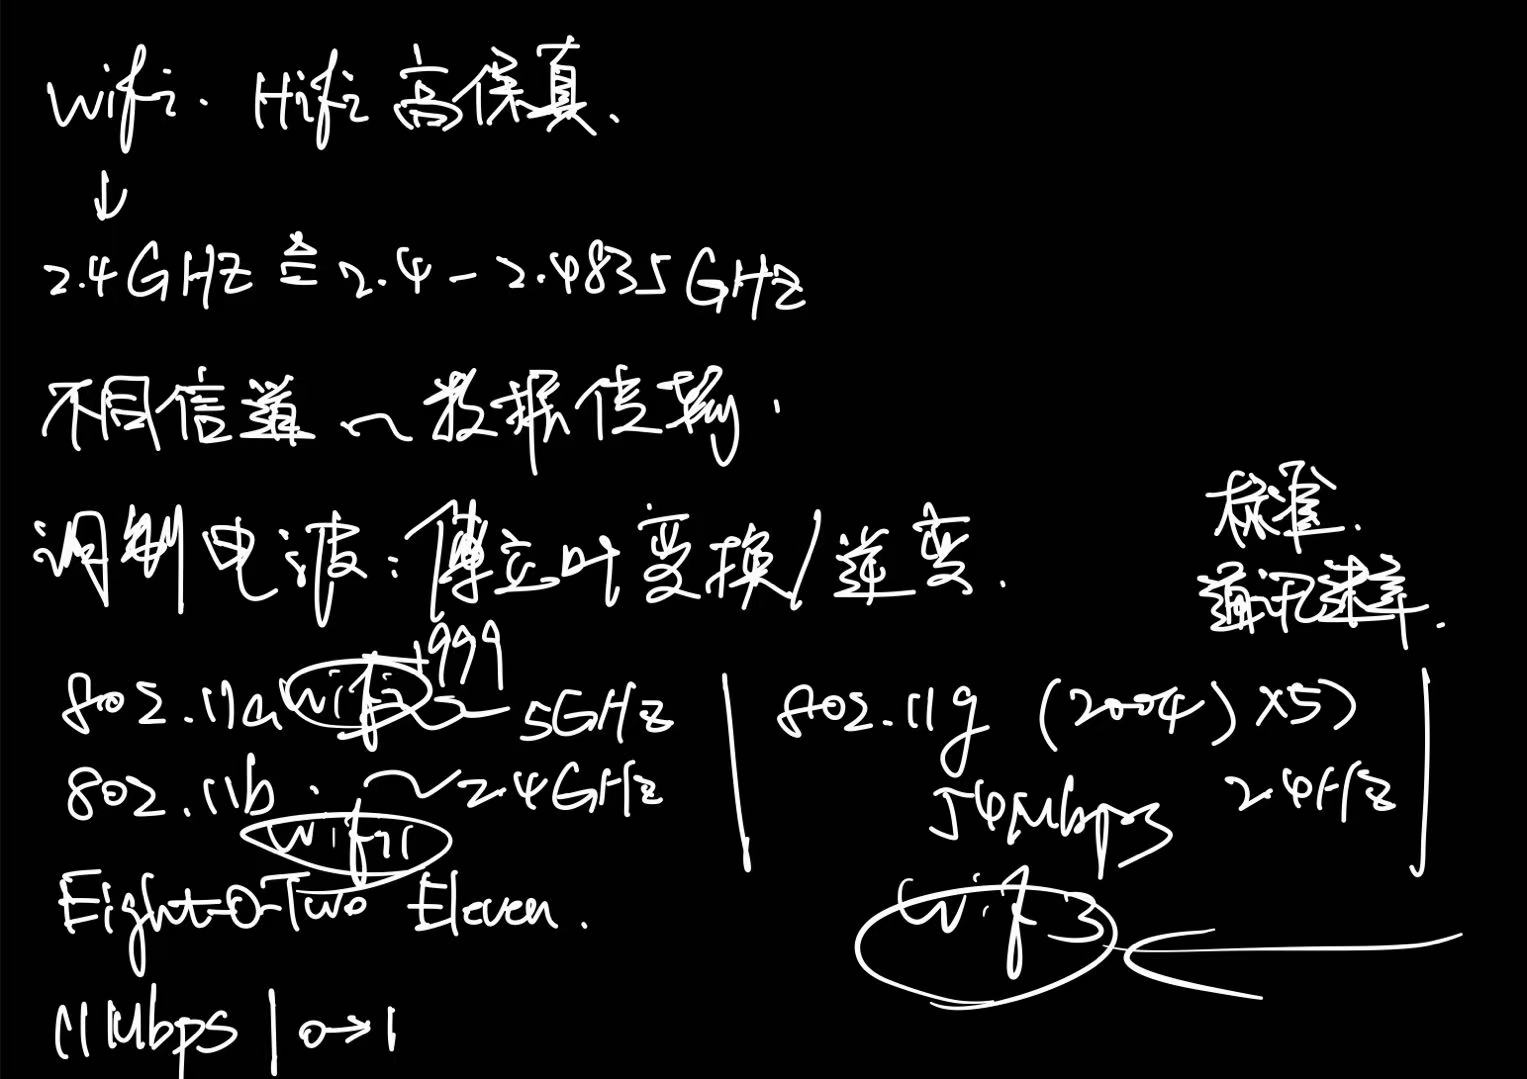 Wifi. Hifi 高保真.
↓
2.4GHZ ≙ 2.4-2.4835GHz
不同信道~数据传输.
调制电波:傅立叶变换/逆变.
标准.
通讯速率.
1999
802.11a wifi2 ~ 5GHz
802.11b. ~2.4GHz
wifi1
Eight-O-Two Eleven.
11Mbps | 0→1
802.11g (2004) ×5)
54Mbps 2.4Hz
wifi3